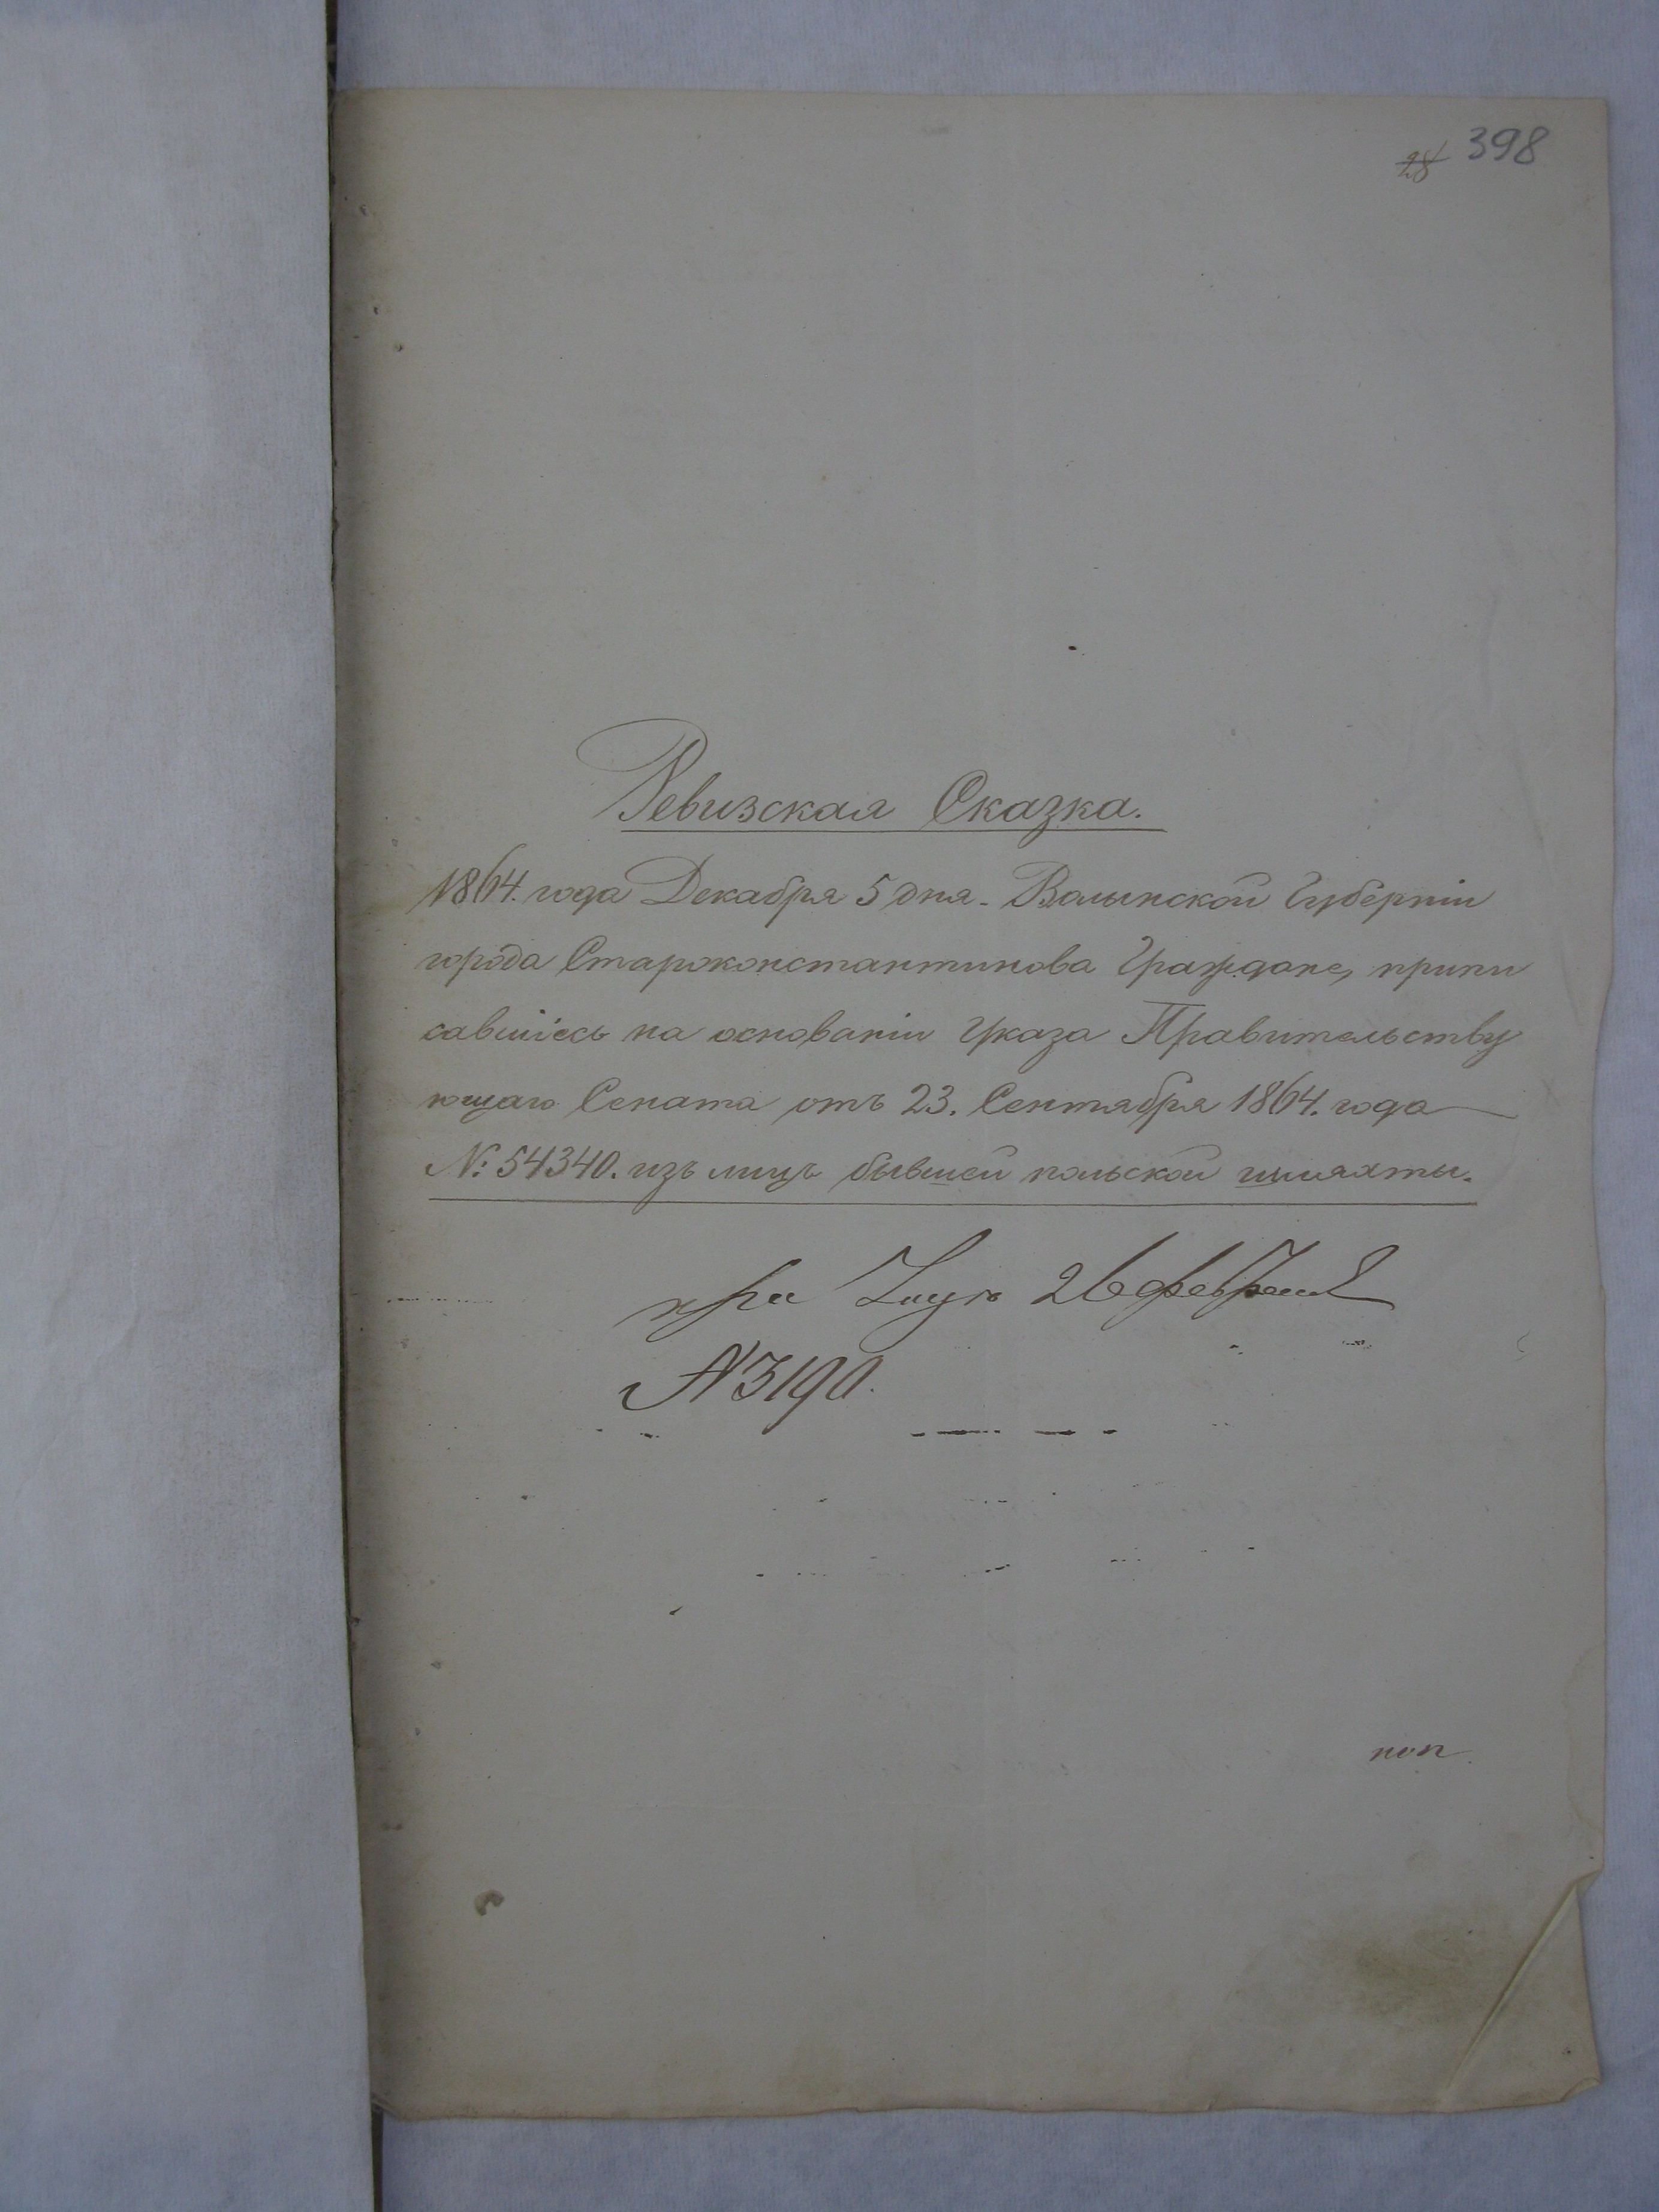 28 398
Ревизская Сказка.
1864. года Декабря 5 дня. Волынской Губерніи
города Староконстантинова Граждане, припи
савшіесь на основаніи Указа Правительству
ющаго Сената отъ 23. Сентября 1864. года
№: 54340. изъ лицъ бывшей польской шляхты.
при 26 февраля
№ 3190.